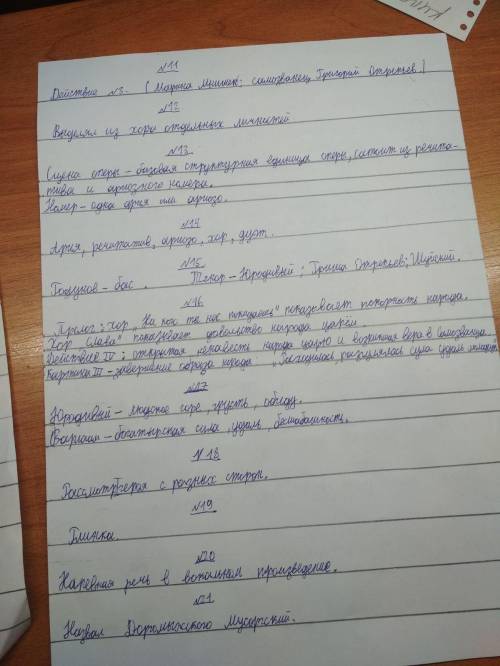 №11
Действие №3 - (Марина Мнишек; самозванец Григорий Отрепьев)
№12
Выделял из хора отдельных личностей
№13
Сцена оперы - базовая структурная единица оперы, состоит из речита-
тива и ариозного номера.
Номер - одна ария или ариозо.
№14
Ария, речитатив, ариозо, хор, дуэт.
№15
Годунов - бас. Тенор - Юродивый; Гриша Отрепьев; Шуйский.
№16
Пролог: хор "На кого ты нас покидаешь" показывает покорность народа.
Хор "Слава" показывает довольство народа царём.
Действие IV: открытая ненависть народа царю и возникшая вера в Самозванца
Картина III - завершение образа народа. "Расходилась, разгулялась сила удаль молодецк
№17
Юродивый - людское горе, грусть, обиду.
Варлаам - богатырская сила, удаль, бесшабашность.
№18
Рассмотр героя с разных сторон.
№19
Глинка.
№20
Напевная речь в вокальном произведение.
№21
Назвал Даргомыжского Мусоргский.